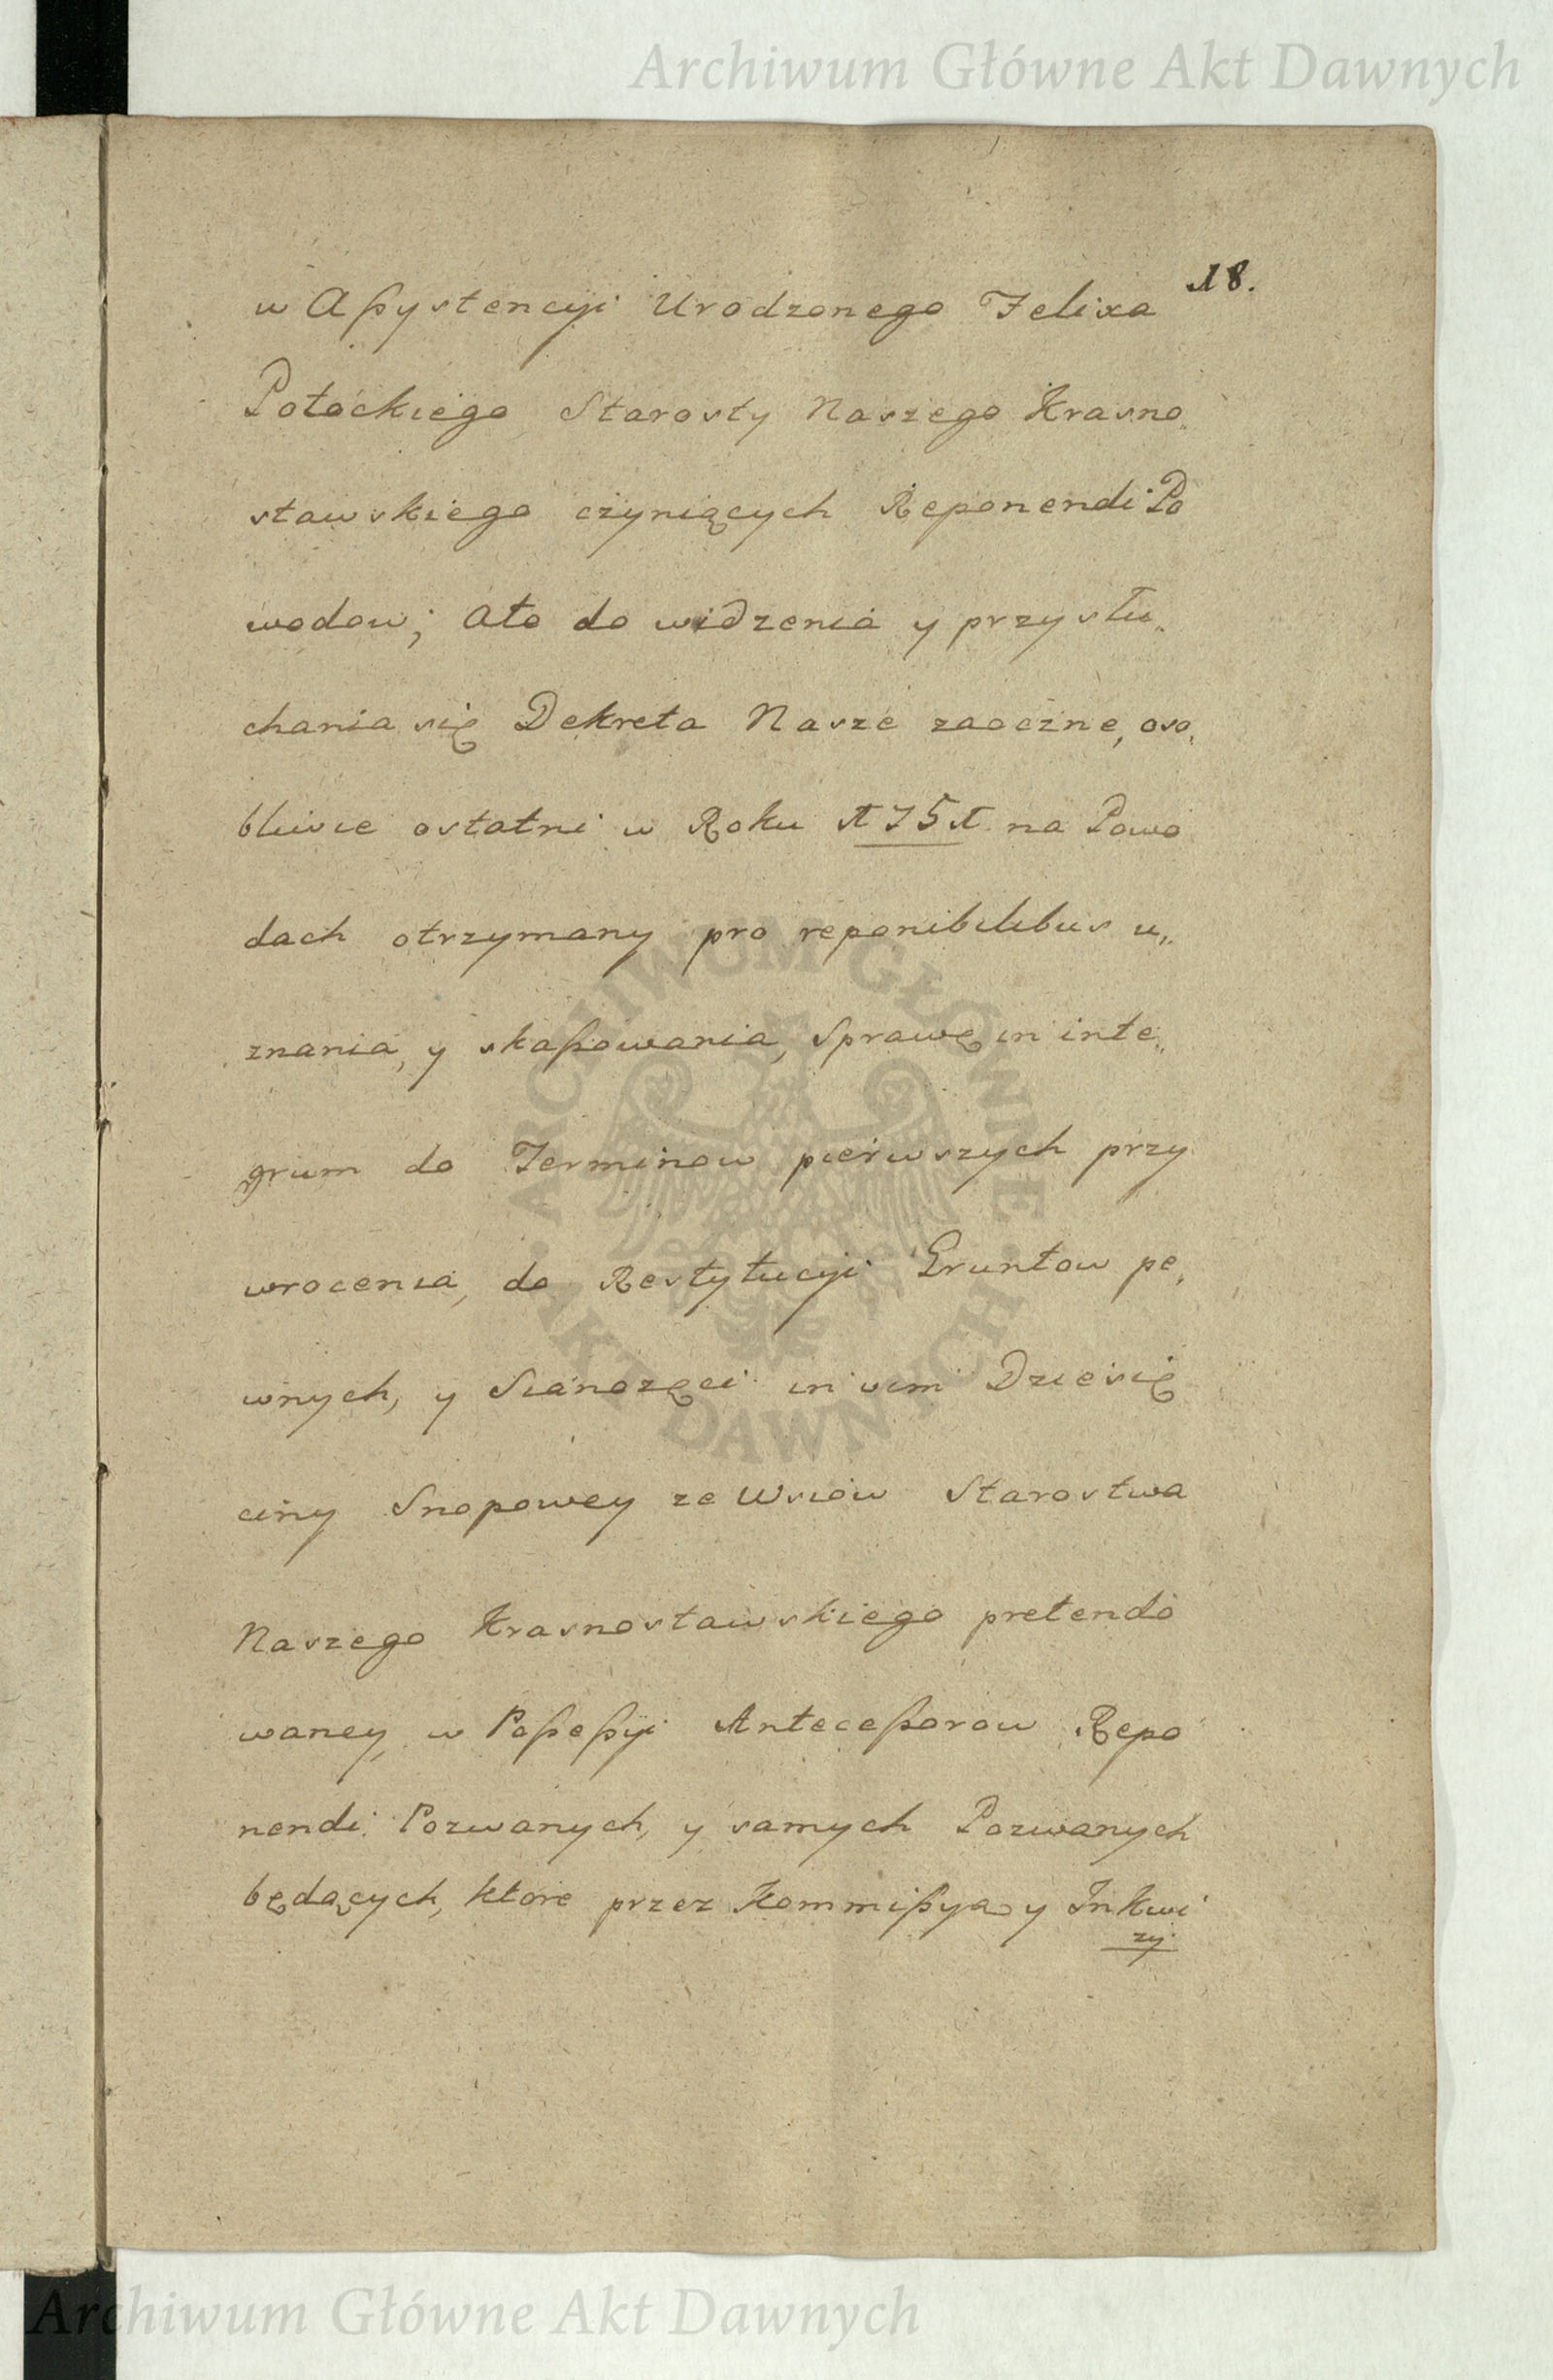 Archiwum Główne Akt Dawnych
18.
w Aßystencyi Urodzonego Felixa
Potockiego Starosty Naszego Krasno„
stawskiego czyniących Reponendi Po
wodow; ato do widzenia y przysłu„
chania się Dekreta Nasze zaoczne, oso„
bliwie ostatni w Roku 1751. na Powo
dach otrzymany pro reponibilibus u„
znania, y skaßowania, Sprawę in inte„
grum do Terminow pierwszych przy
wrocenia, do Restytucyi Gruntow pe„
wnych, y Sianozęci in vim Dziesię
ciny Snopowey ze Wsiow Starostwa
Naszego Krasnostawskiego pretendo
waney, w Poßeßyi Anteceßorow Repo
nendi Pozwanych, y samych Pozwanych
będących, ktore przez Kommißya y Inkwi
zy
ARCHIWUM GŁÓWNE • AKT DAWNYCH •
Archiwum Główne Akt Dawnych